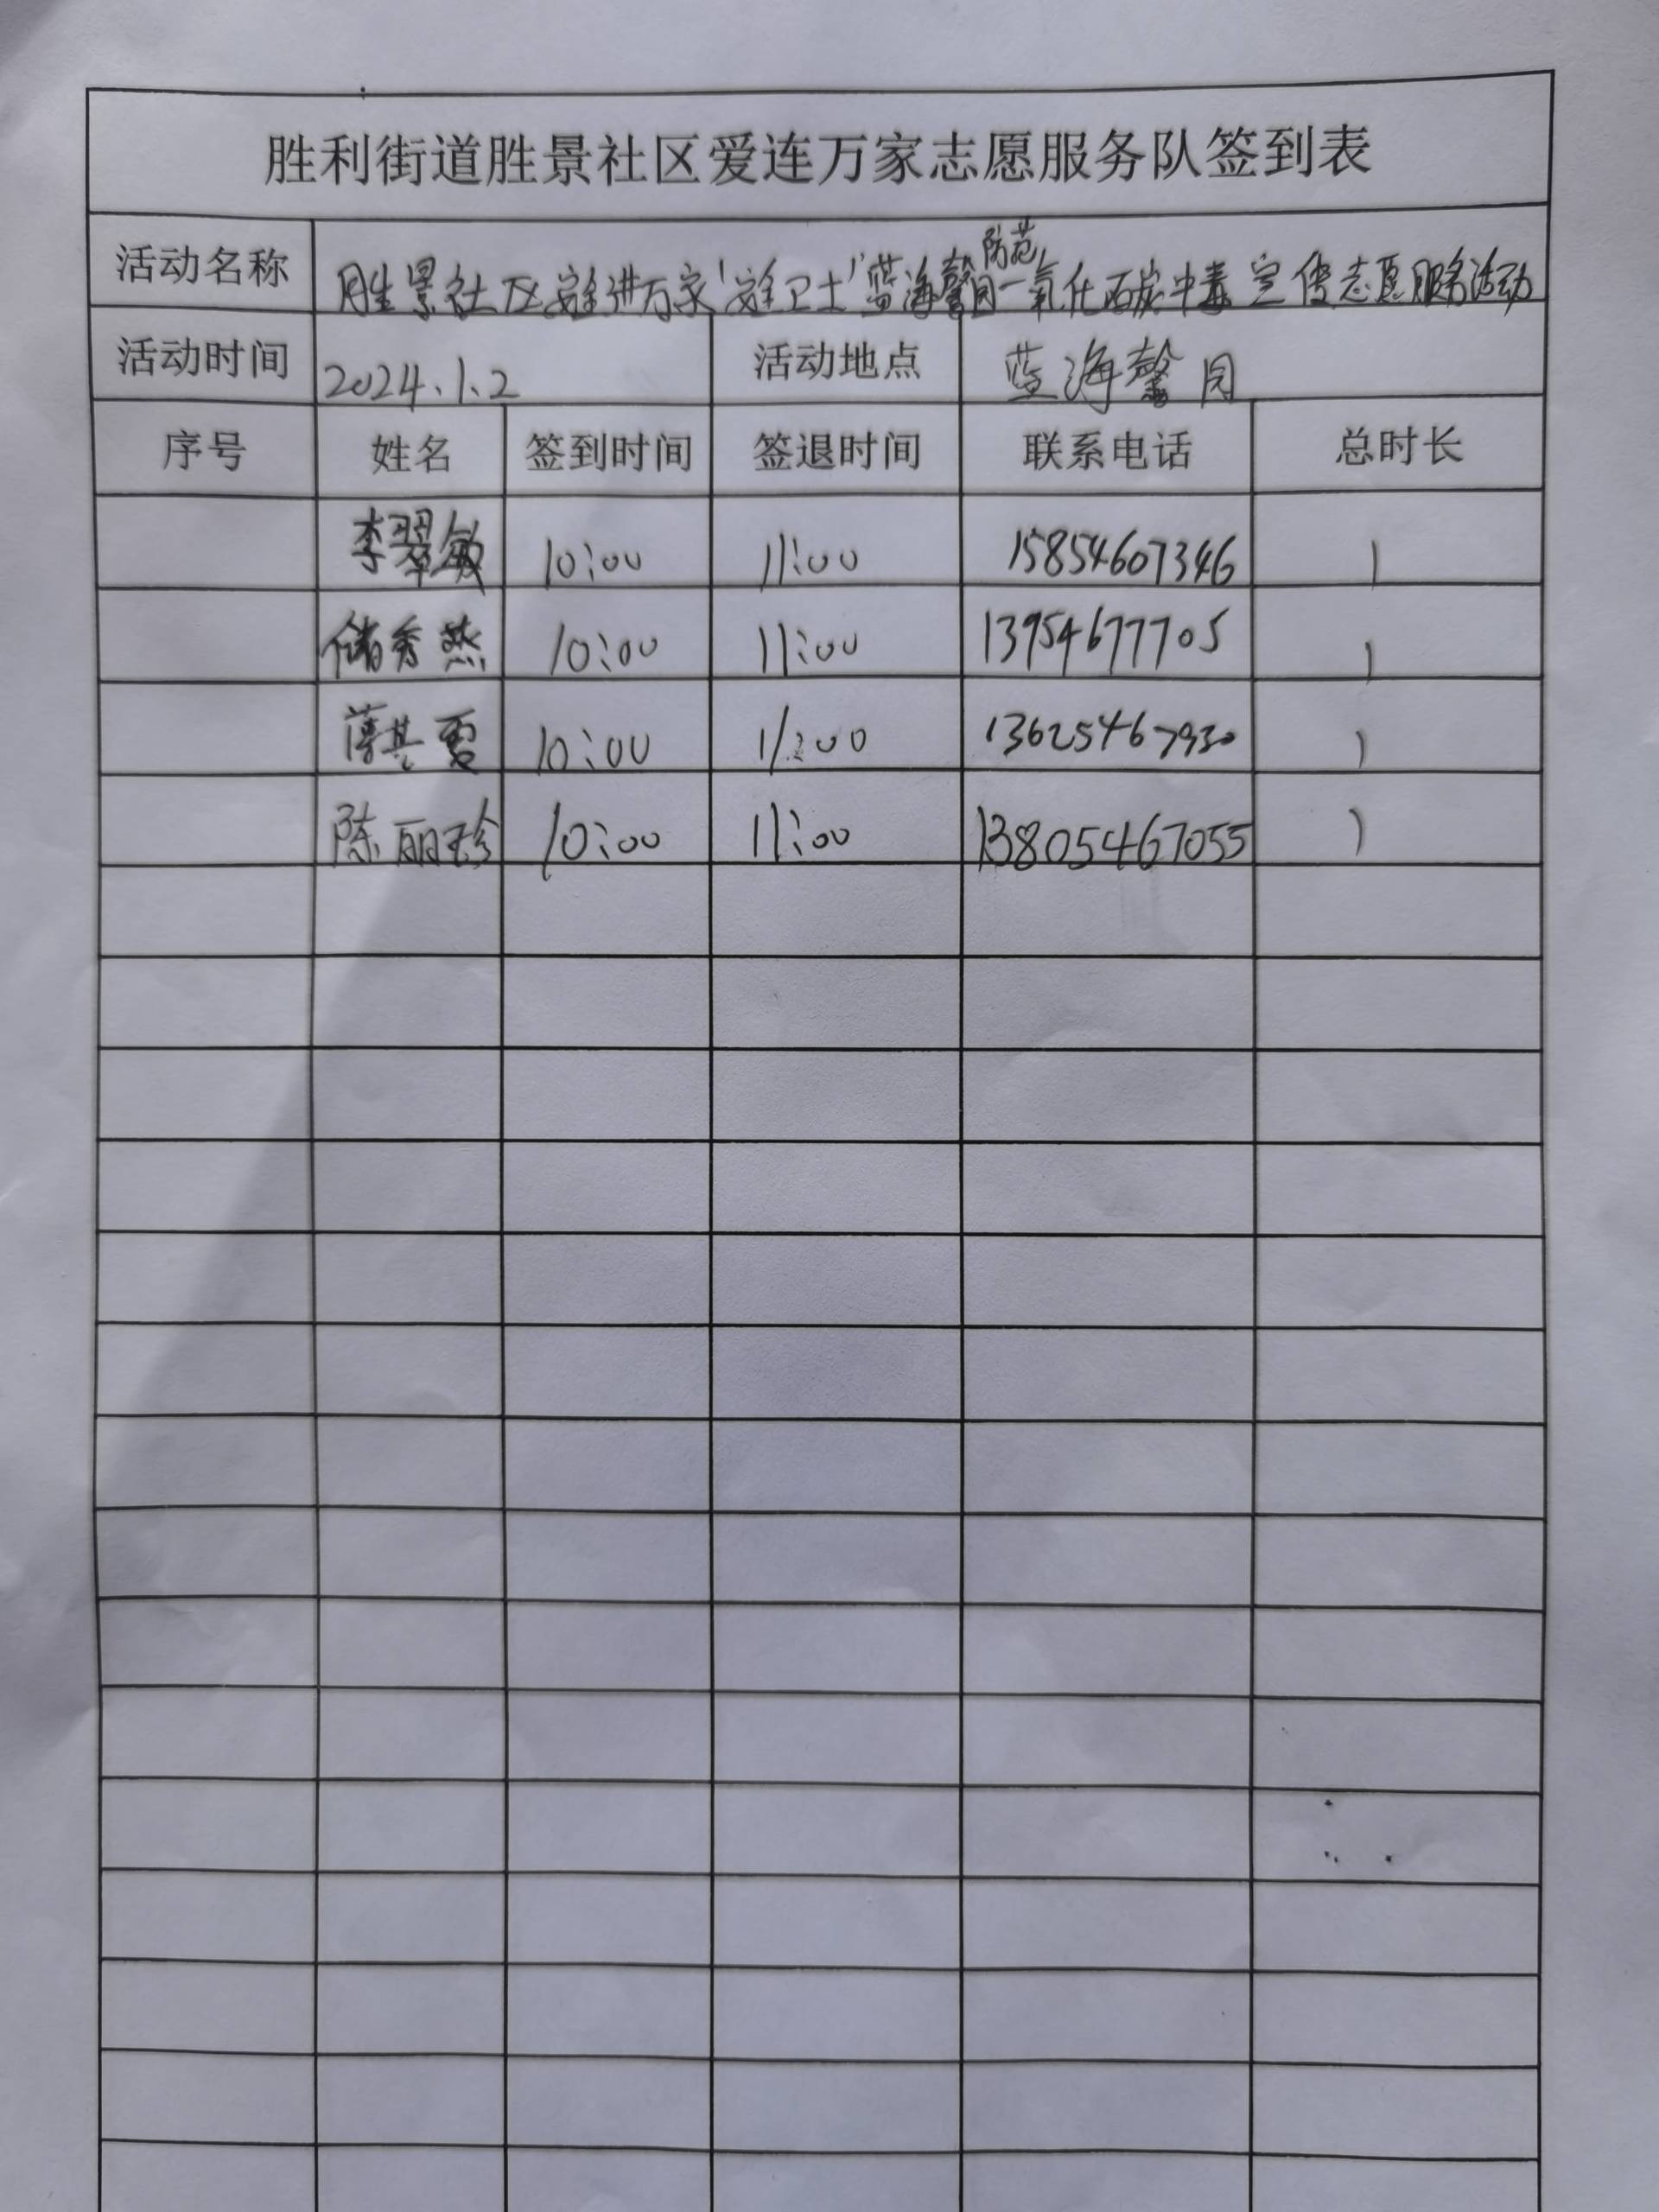 胜利街道胜景社区爱连万家志愿服务队签到表
活动名称 胜景社区安全进万家"安全卫士"蓝海馨园防范一氧化碳中毒宣传志愿服务活动
活动时间 2024.1.2 活动地点 蓝海馨园
序号 姓名 签到时间 签退时间 联系电话 总时长
李翠敏 10:00 11:00 15854607346 1
储秀燕 10:00 11:00 13954677705 1
薄其雪 10:00 11:00 13625467930 1
陈丽珍 10:00 11:00 13805467055 1